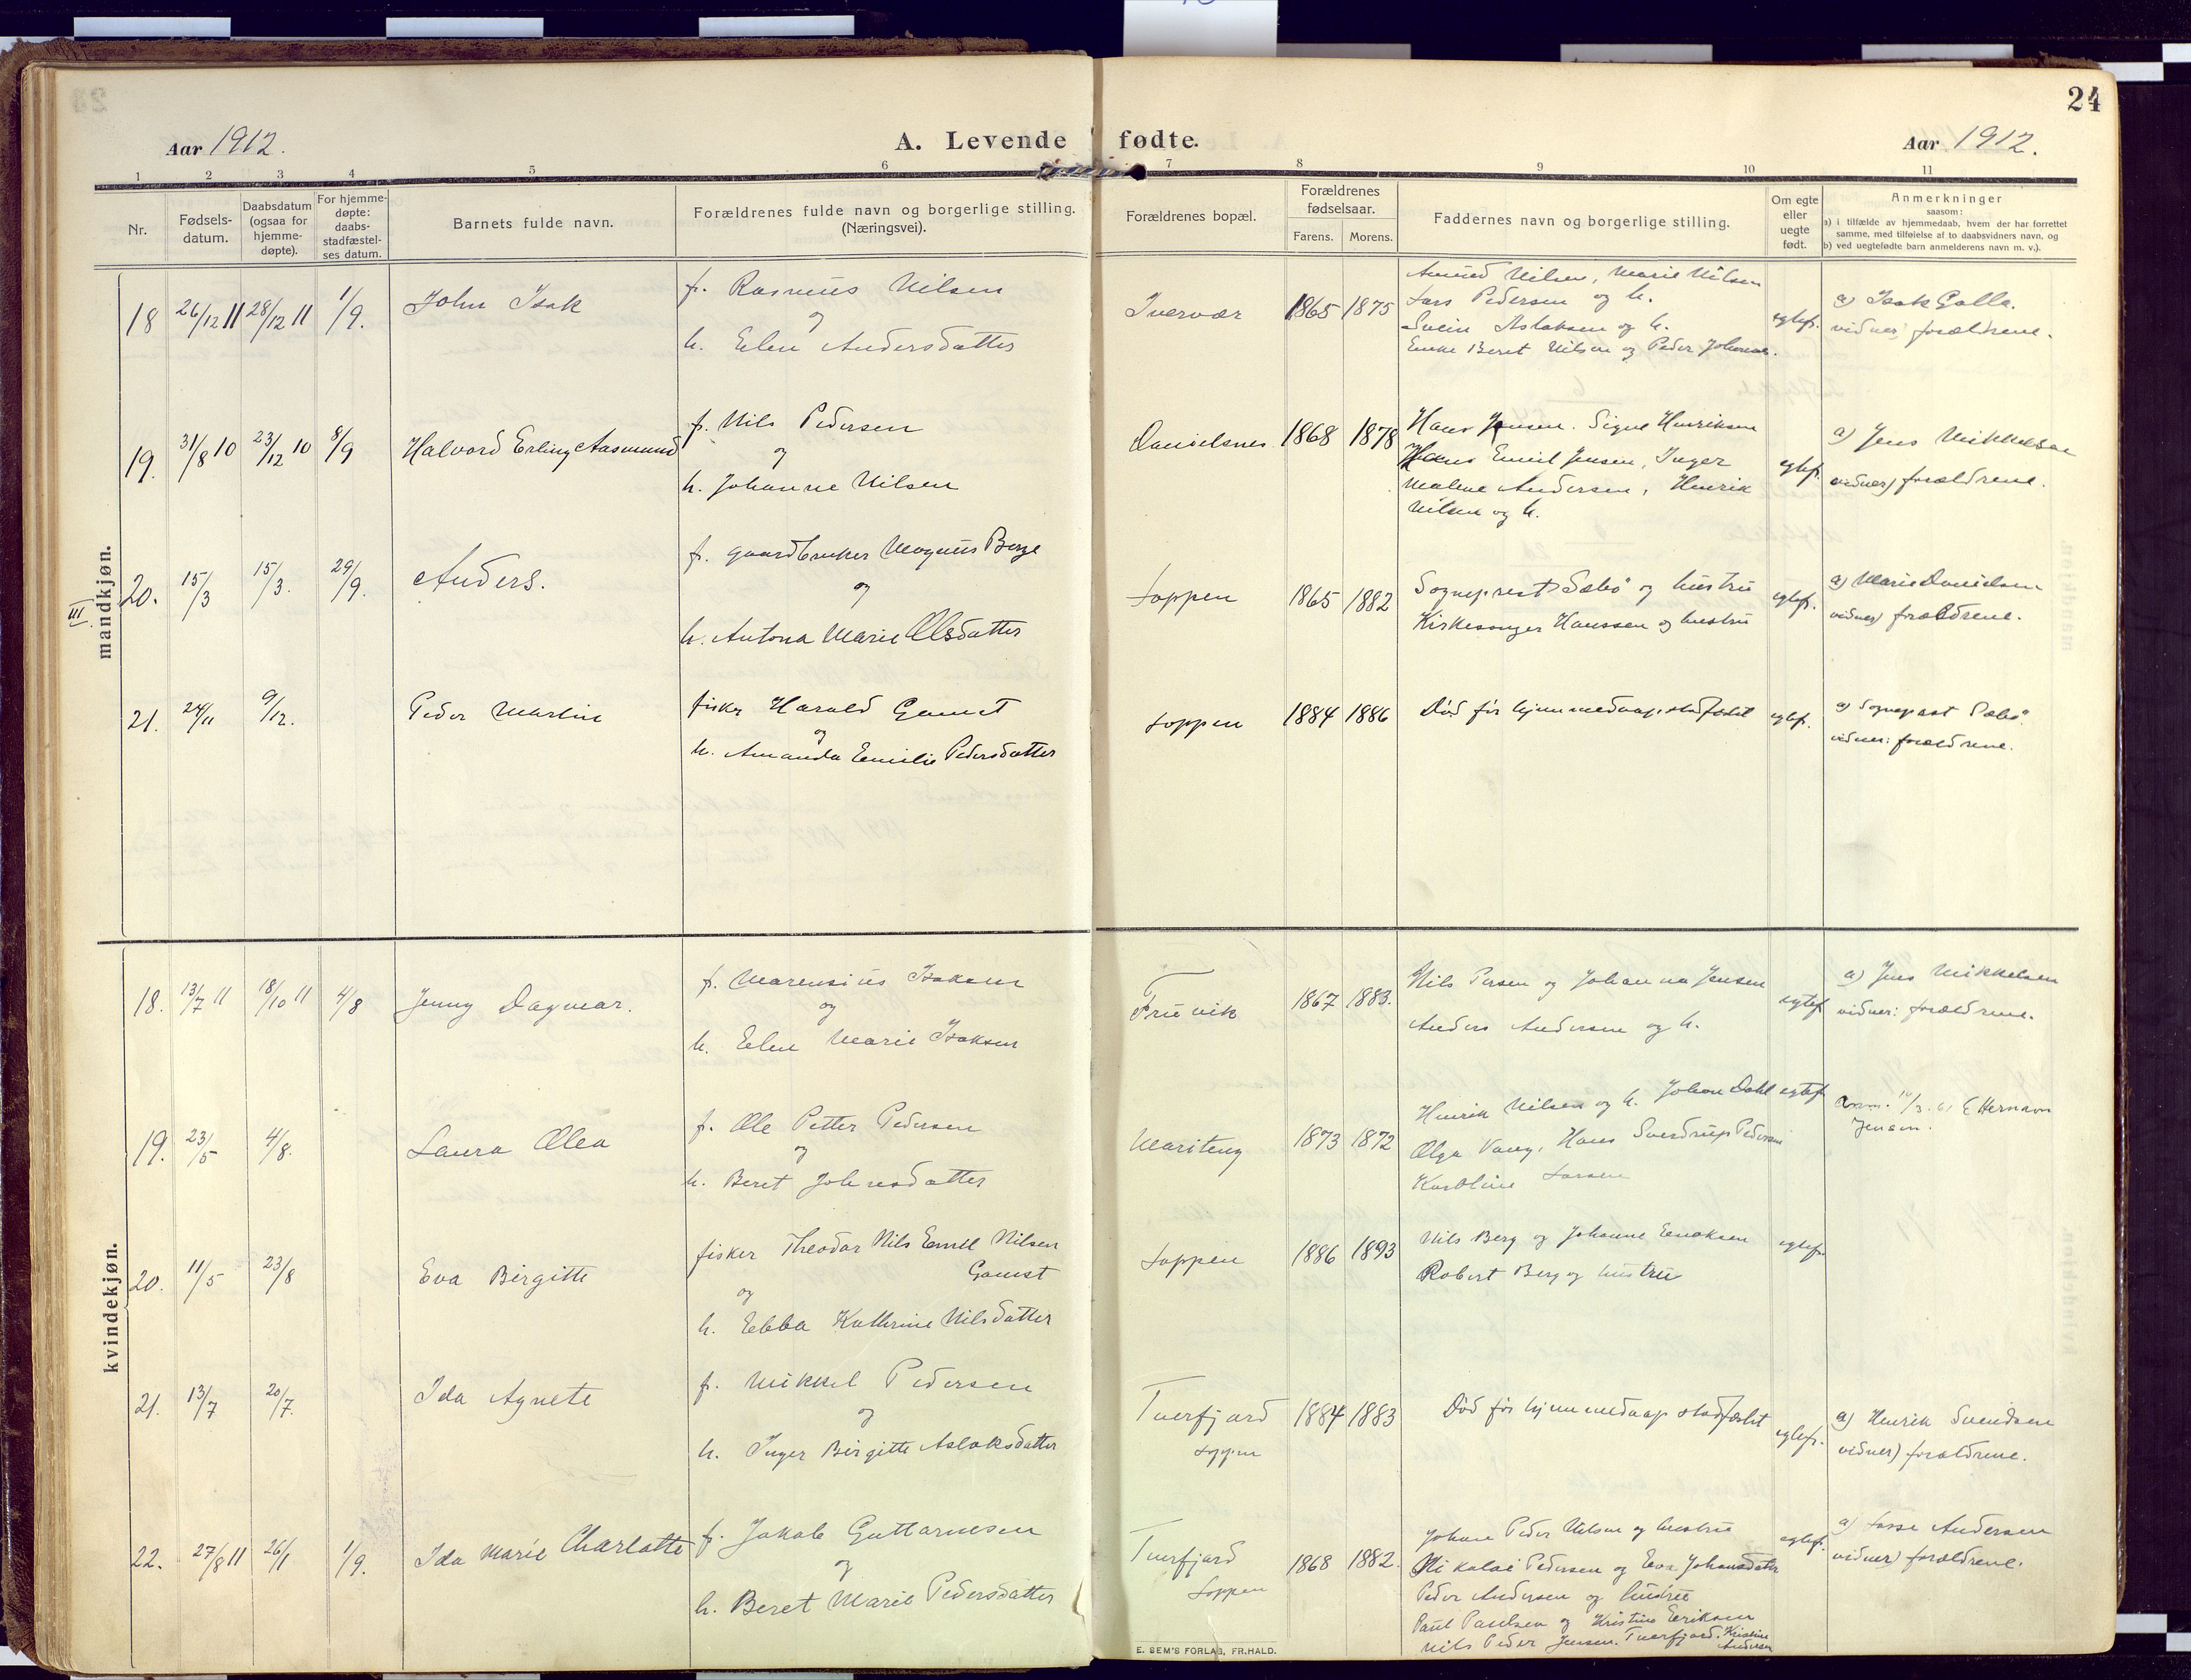 24
Aar 1912.
A. Levende fødte.
Aar 1912.
1 2 3 4 5 6 7 8 9 10 11
Nr.
Fødsels-
datum.
Daabsdatum
(ogsaa for
hjemme-
døpte).
For hjemme-
døpte:
daabs-
stadfæstel-
ses datum.
Barnets fulde navn.
Forældrenes fulde navn og borgerlige stilling.
(Næringsvei).
Forældrenes bopæl.
Forældrenes
fødselsaar.
Farens. Morens.
Faddernes navn og borgerlige stilling.
Om egte
eller
uegte
født.
Anmerkninger
saasom:
a) i tilfælde av hjemmedaab, hvem der har forrettet
samme, med tilføielse af to daabsvidners navn, og
b) ved uegtefødte barn anmelderens navn m. v.).
III
mandkjøn.
18 26/12 11 28/12 11 1/9. John Isak
f. Rasmus Nilsen
og
h. Elen Andersdatter
Ivervær 1865 1875
Amund Nilsen, Marie Nilsen
Lars Pedersen og h.
Svein Aslaksen og h.
Beret Nilsen og Peder Johansen.
egtef.
a) Isak Galla.
vidner) forældrene.
19. 31/8 10 23/12 10 8/9 Halvord Erling Aasmund
f. Nils Pedersen
og
h. Johanne Nilsen
Danielsnes 1868 1878
Hans Jensen. Signe Henriksen
Hans Emil Jensen, Inger
Malene Andersen, Henrik
Nilsen og h.
egtef.
a) Jens Mikkelsen
vidner) forældrene.
20. 15/3 15/3. 29/9. Anders.
f. gaardbruker Magnus Berge
og
h. Antona Marie Olsdatter
Loppen 1865 1882
Sogneprest Sæbö og hustru
Kirkesanger Hanssen og hustru
egtef.
a) Marie Danielsen
vidner) forældrene.
21. 24/11 9/12. Peder Martin
fisker Harald Gamst
og
h. Amanda Emilie Pedersdatter
Loppen 1884 1886
Död för hjemmedaap stadfæstet
egtef.
a) Sogneprest Sæbö.
vidner: forældrene.
kvindekjøn.
18. 13/7 11 18/10 11 4/8 Jenny Dagmar.
f. Marensius Isaksen
og
h. Elen Marie Isaksen
Fruvik 1867 1883.
Nils Persen og Johanna Jensen
Anders Andersen og h.
egtef.
a) Jens Mikkelsen
vidner: forældrene.
19. 23/5 4/8. Laura Olea
f. Ole Petter Pedersen
og
h. Beret Johnsdatter
Mariteng 1873 1872
Henrik Nilsen og h. Johan Dahl
Olga Vang, Hans Sverdrup Pedersen
Karoline Larsen
egtef.
Jensen.
20. 11/5 23/8 Eva Birgitte
fisker Theodor Nils Emil Nilsen
Gamst
og
h. Ebba Kathrine Nilsdatter
Loppen 1886 1893
Nils Berg og Johanne Enoksen
Robert Berg og hustru
egtef.
21. 13/7 20/7. Ida Agnete
f. Mikkel Pedersen
og
h. Inger Birgitte Aslaksdatter
Tverfjord
Loppen
1884 1883
Död för hjemmedaap stadfæstet
egtef.
a) Henrik Svendsen
vidner) forældrene.
22. 27/8 11 26/1 1/9. Ida Marie Charlotte
f. Jakob Guttormsen
og
h. Beret Marie Pedersdatter
Tverfjord
Loppen
1868 1882.
Johan Peder Nilsen og hustru
Nikolai Pedersen og Eva Johansdatter
Peder Andersen og hustru
Paul Paulsen og Kristine Eriksen
Nils Peder Jensen. Tverfjord. Kristine
Andersen
egtef.
a) Lasse Andersen
vidner) forældrene.
E. SEM'S FORLAG, FR.HALD.